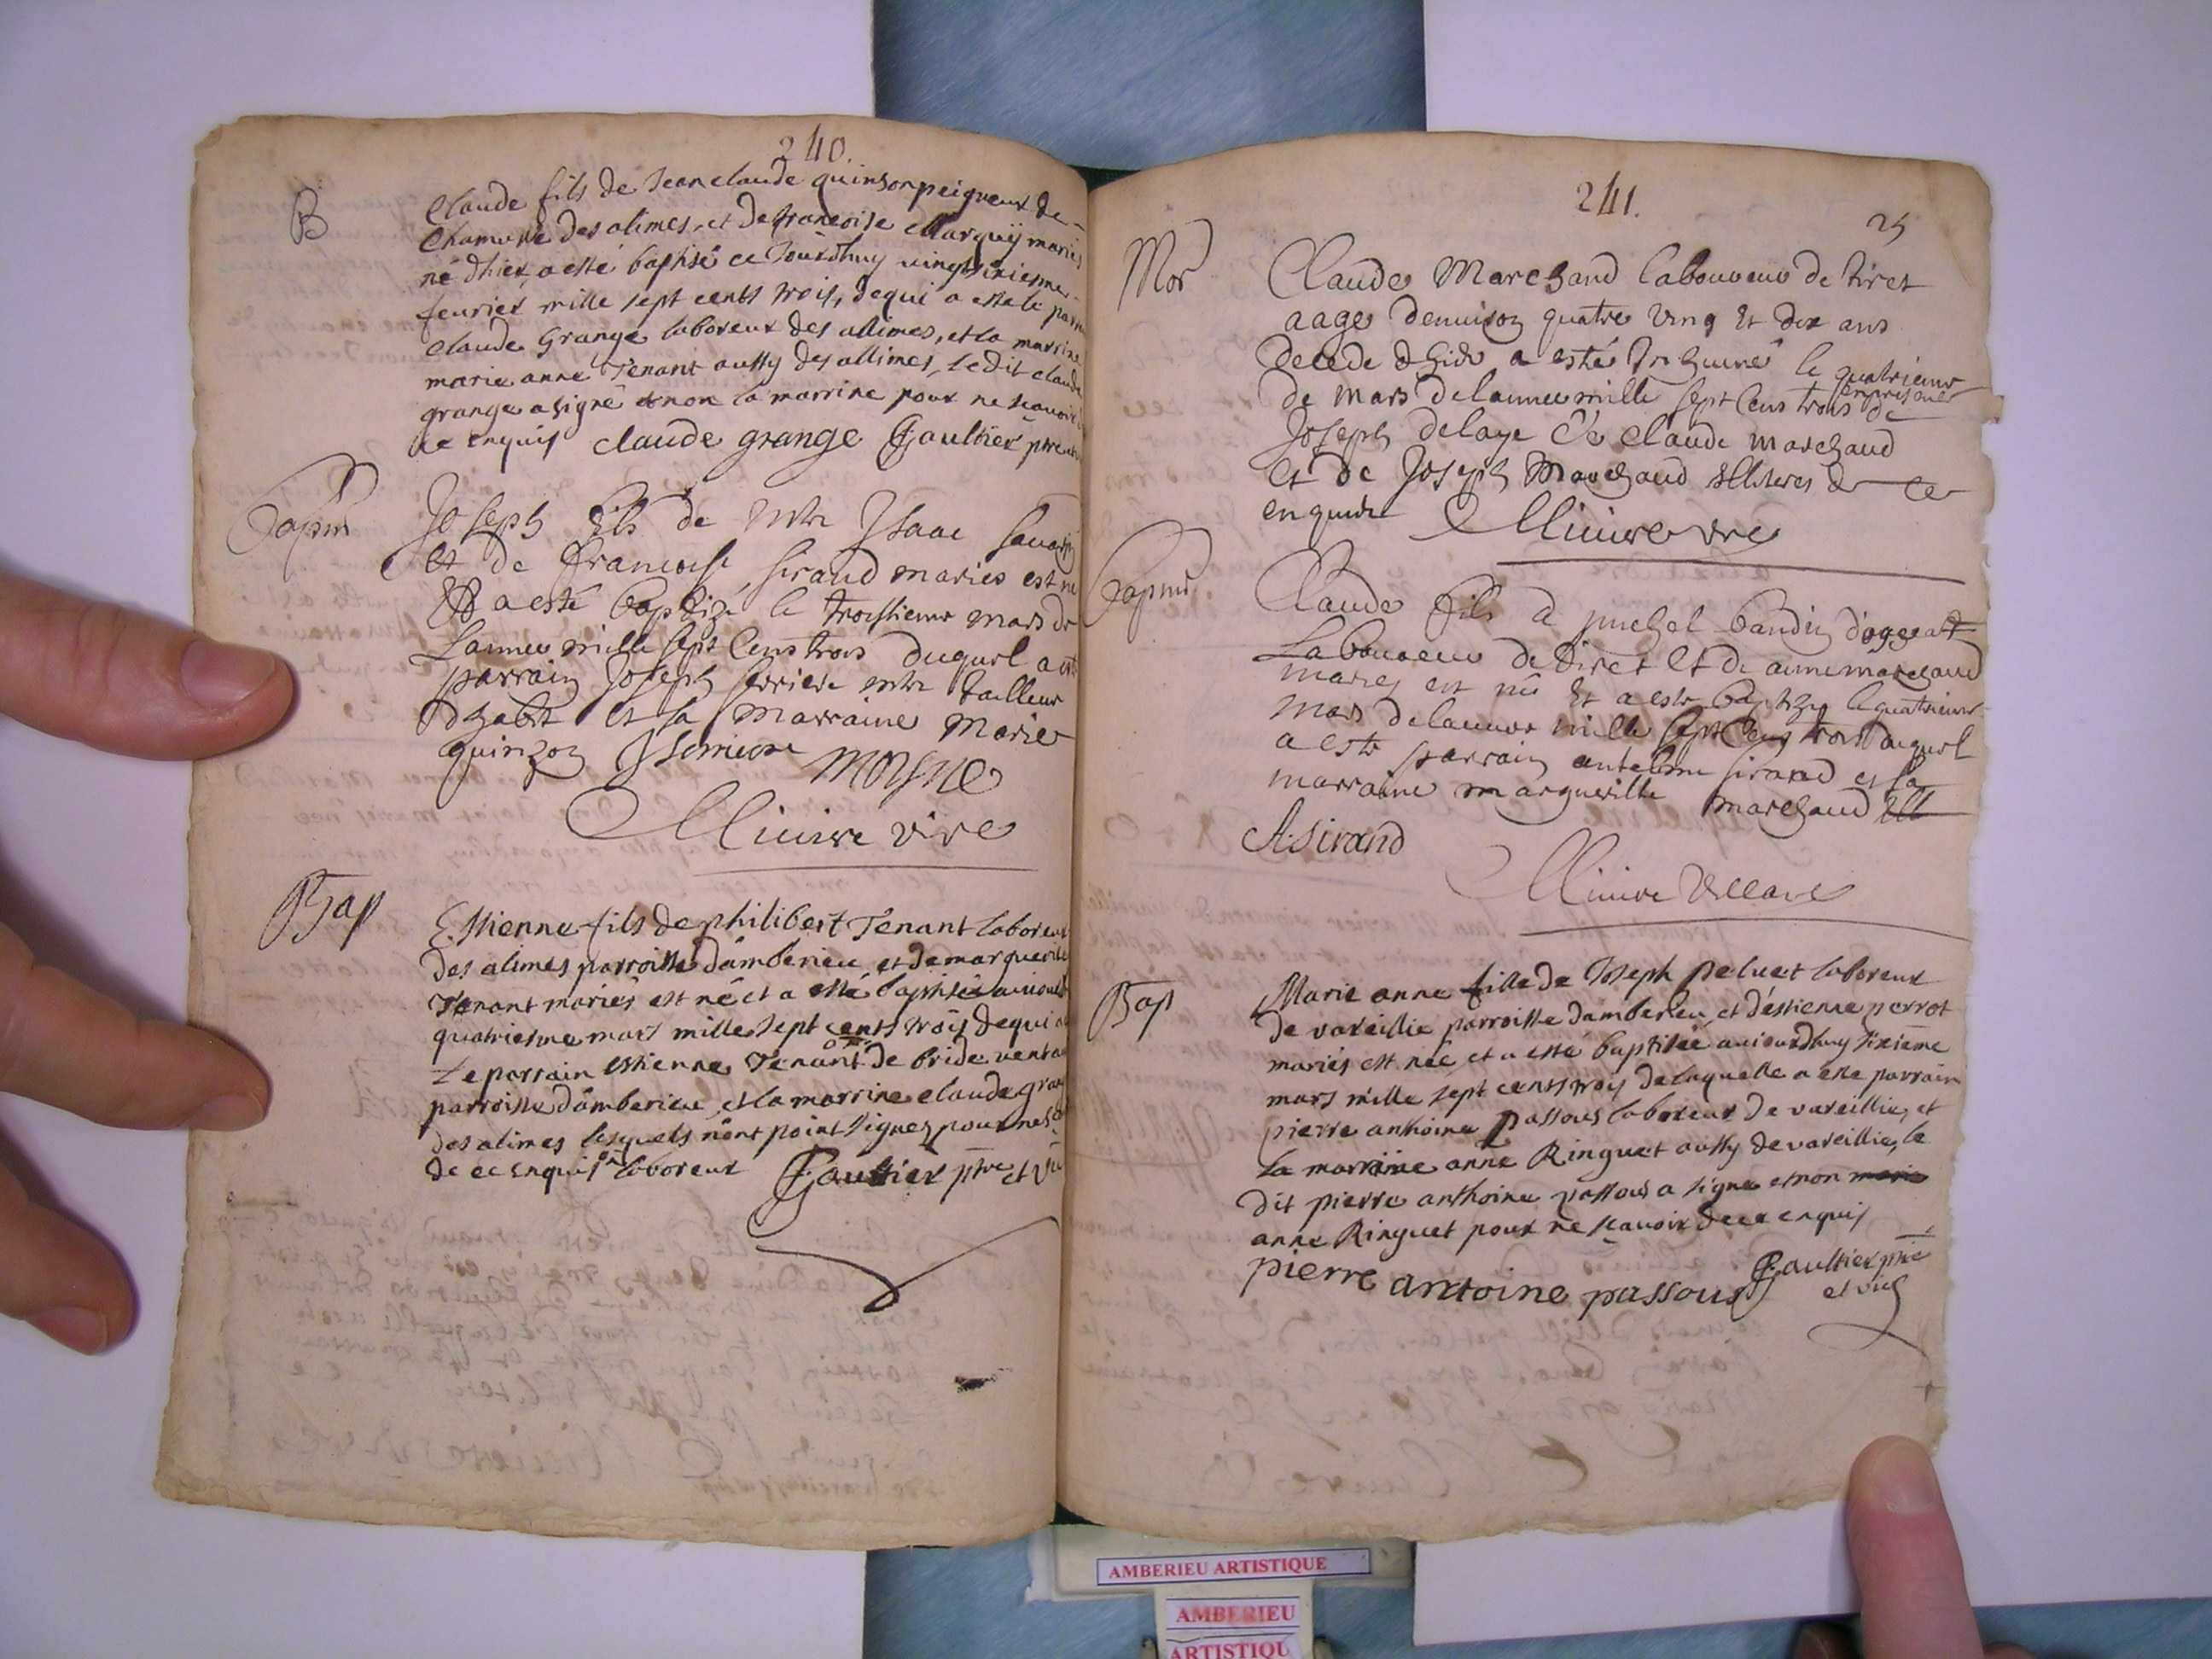 240.
B
Claude fils de Jean claude quinson peigneur de
Chamvre des alimes, et de francoise Marquij mariés
né dhier, a esté baptisé ce Jourdhuy vingtsixiesme
feurier mille sept cents trois, de qui a esté le parrin
claude Grange laboreur des allimes, et la marrine
marie anne Tenant aussy des allimes, Le dit claude
grange a signé et non la marrine pour ne scavoir
de enquis claude grange Gaultier ptre
Joseph fils de mtre Isaac
et de francoise siraud maries est né
Et a esté baptizé le troissieme mars de
Lannee mille sept Cens trois duquel a esté
parrain Joseph serriere mtre tailleur
dhabit et sa Marraine Marie
quinzon
Mligne
vire
Bap
Estienne fils de philibert Tenant laboreur
des alimes parroisse d'amberieu et de marguerite
Tenant mariés est né et a esté baptisé auiourd
quatriesme mars mille sept cents trois de qui a
Le parrain estienne Tenant de bride venta
parroisse d'amberieu et la marrine claude gran
des alimes lesquels n'ont point signez pour ne sc
de ce enquis laboreur Gaultier ptre et vic
241.
25
Mor
Claude Marchand laboureur de tiret
aage denuiron quatre ving Et dix ans
decede dhier a esté Inhumé le quatrieme
de mars de lannee mille sept Cens trois en presence de
Joseph delaye de claude marchand
et de Joseph Marchand Illiteres de ce
enquis
Claude fils a michel baudin dageat
Laboureur de tiret et de anne marchand
maries est né Et a este baptizé le quatrieme
mars de lannee mille sept Cens trois duquel
a este parrain antelme sirand et sa
marraine margueritte marchand Ill
A. Sirand
Bap
Marie anne fille de Joseph peluet laboreur
de vareillie parroisse d'amberieu, et d'estienne perrot
mariés est née et a esté baptisée auiourdhuy sixieme
mars mille sept cents trois de laquelle a esté parrain
pierre anthoine passous laboreur de vareillie, et
La marrine anne Ringuet aussy de vareillie, le
dit pierre anthoine passous a signé et non marie
anne Ringuet pour ne scavoir de ce enquis
pierre antoine passous Gaultier ptre
et vic
AMBERIEU ARTISTIQUE
AMBERIEU
ARTISTIQU